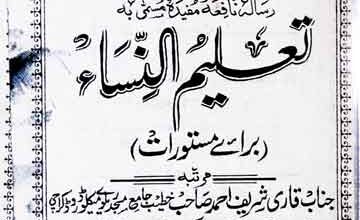 رسالہ نافعہ مفیدہ مسمّٰی بہ
تعلیمُ النِّسَاء
(برائے مستورات)
مرتبہ
جناب قاری شریف احمد صاحب خطیب جامع مسجد ریلوے میکلوڈ روڈ کراچی